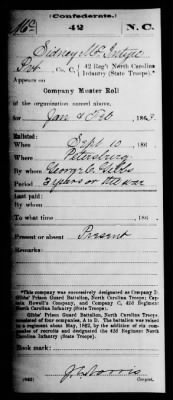 (Confederate.)
Mc 42 N.C.
Sidney McIntyre
Pvt., Co. C, 42 Reg't North Carolina
Infantry (State Troops).
Appears on
Company Muster Roll
of the organization named above,
for Jan & Feb, 1863.
Enlisted:
When Sept 10, 186
Where Petersburg
By whom George C. Gibbs
Period 3 years or the war
Last paid:
By whom
To what time , 186 .
Present or absent Present
Remarks:
*This company was successively designated as Company D
Gibbs' Prison Guard Battalion, North Carolina Troops; Cap-
tain Howell's Company, and Company C, 42d Regiment
North Carolina Infantry (State Troops).
Gibbs' Prison Guard Battalion, North Carolina Troops,
consisted of four companies, A to D. The battalion was raised
to a regiment about May, 1862, by the addition of six com-
panies of recruits and designated the 42d Regiment North
Carolina Infantry (State Troops).
Book mark:
(642)
Copyist.